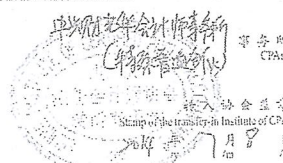 中兴财光华会计师事务所
(特殊普通合伙)
事务所
CPAs
转入协会盖章
Stamp of the transfer-in Institute of CPAs
2014年7月8日